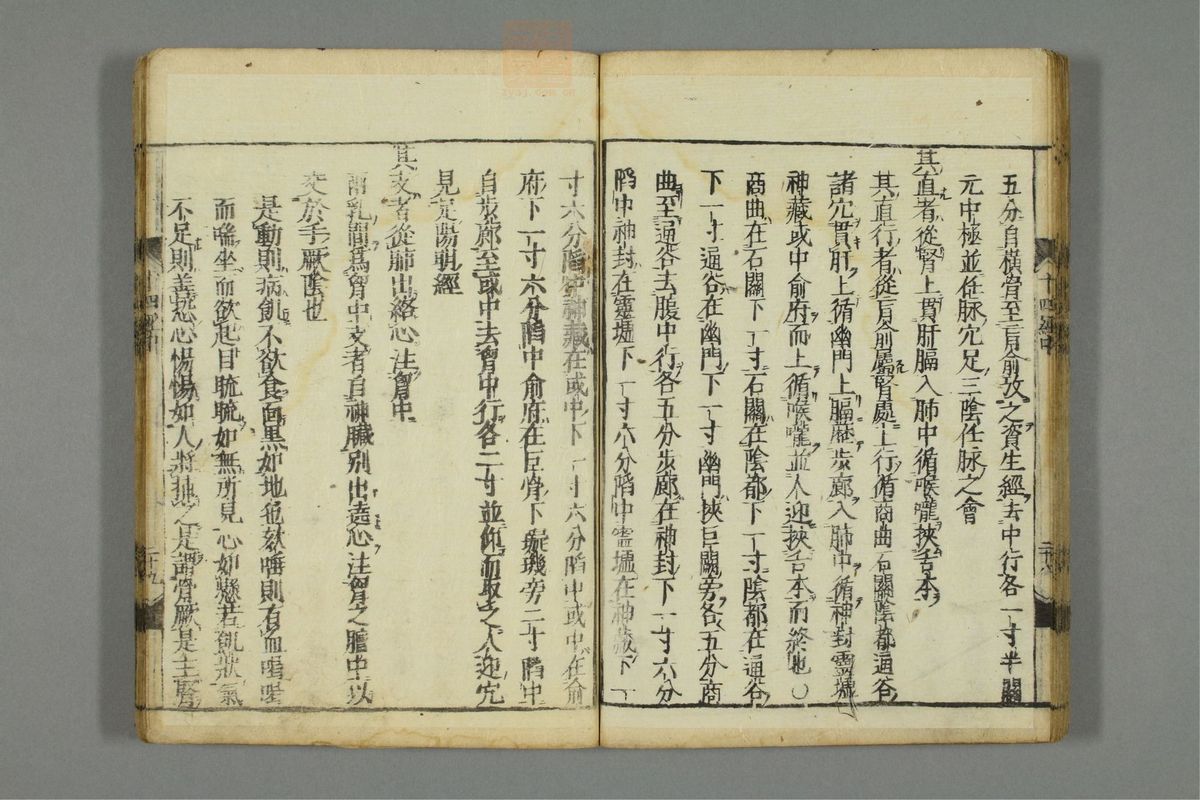 五分自橫骨至肓俞攷之資生經去中行各一寸半關
元中極並任脉穴足三陰任脉之會
其直者從腎上貫肝膈入肺中循喉嚨挾舌本
其直行者從肓俞屬腎處上行循商曲石關陰都通谷
諸穴貫肝上循幽門上膈歷步廊入肺中循神封靈墟
神藏或中俞府而上循喉嚨並人迎挾舌本而終也〇
商曲在石關下一寸石關在陰都下一寸陰都在通谷
下一寸通谷在幽門下一寸幽門挾巨闕旁各五分商
曲至通谷去腹中行各五分步廊在神封下一寸六分
陷中神封在靈墟下一寸六分陷中靈墟在神藏下一
寸六分陷中神藏在或中下一寸六分陷中或中在俞
府下一寸六分陷中俞府在巨骨下璇璣旁二寸陷中
自步廊至或中去胷中行各二寸並仰而取之人迎穴
見足陽明經
其支者從肺出絡心注胷中
兩乳間爲胷中支者自神臓別出遶心注胷之膻中以
交於手厥陰也
是動則病飢不欲食面黒如地色欬唾則有血喝喝
而喘坐而欲起目䀮䀮如無所見心如懸若飢狀氣
不足則善恐心惕惕如人將捕之是謂骨厥是主腎
十四經中
十四經中
二十九
zysj.com.cn